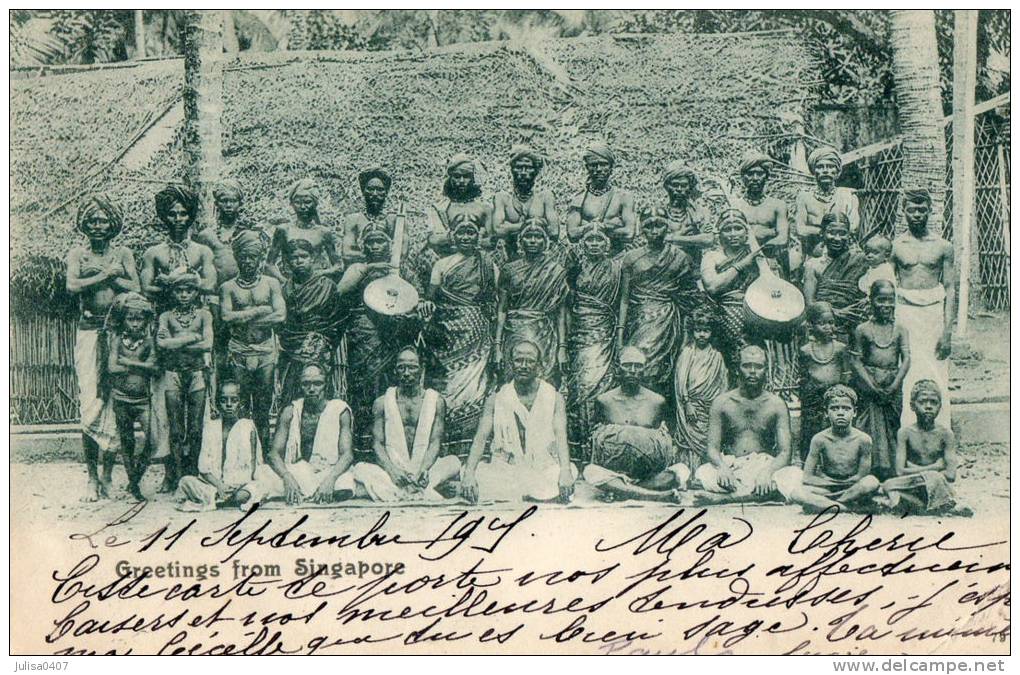 Le 11 Septembre 190 Ma Chérie
Greetings from Singapore
Cette carte te porte nos plus affectueux
baisers et nos meilleures tendresses, j'esp
ma Cécelle que tu es bien sage. Ta
79
julisa0407 www.delcampe.net